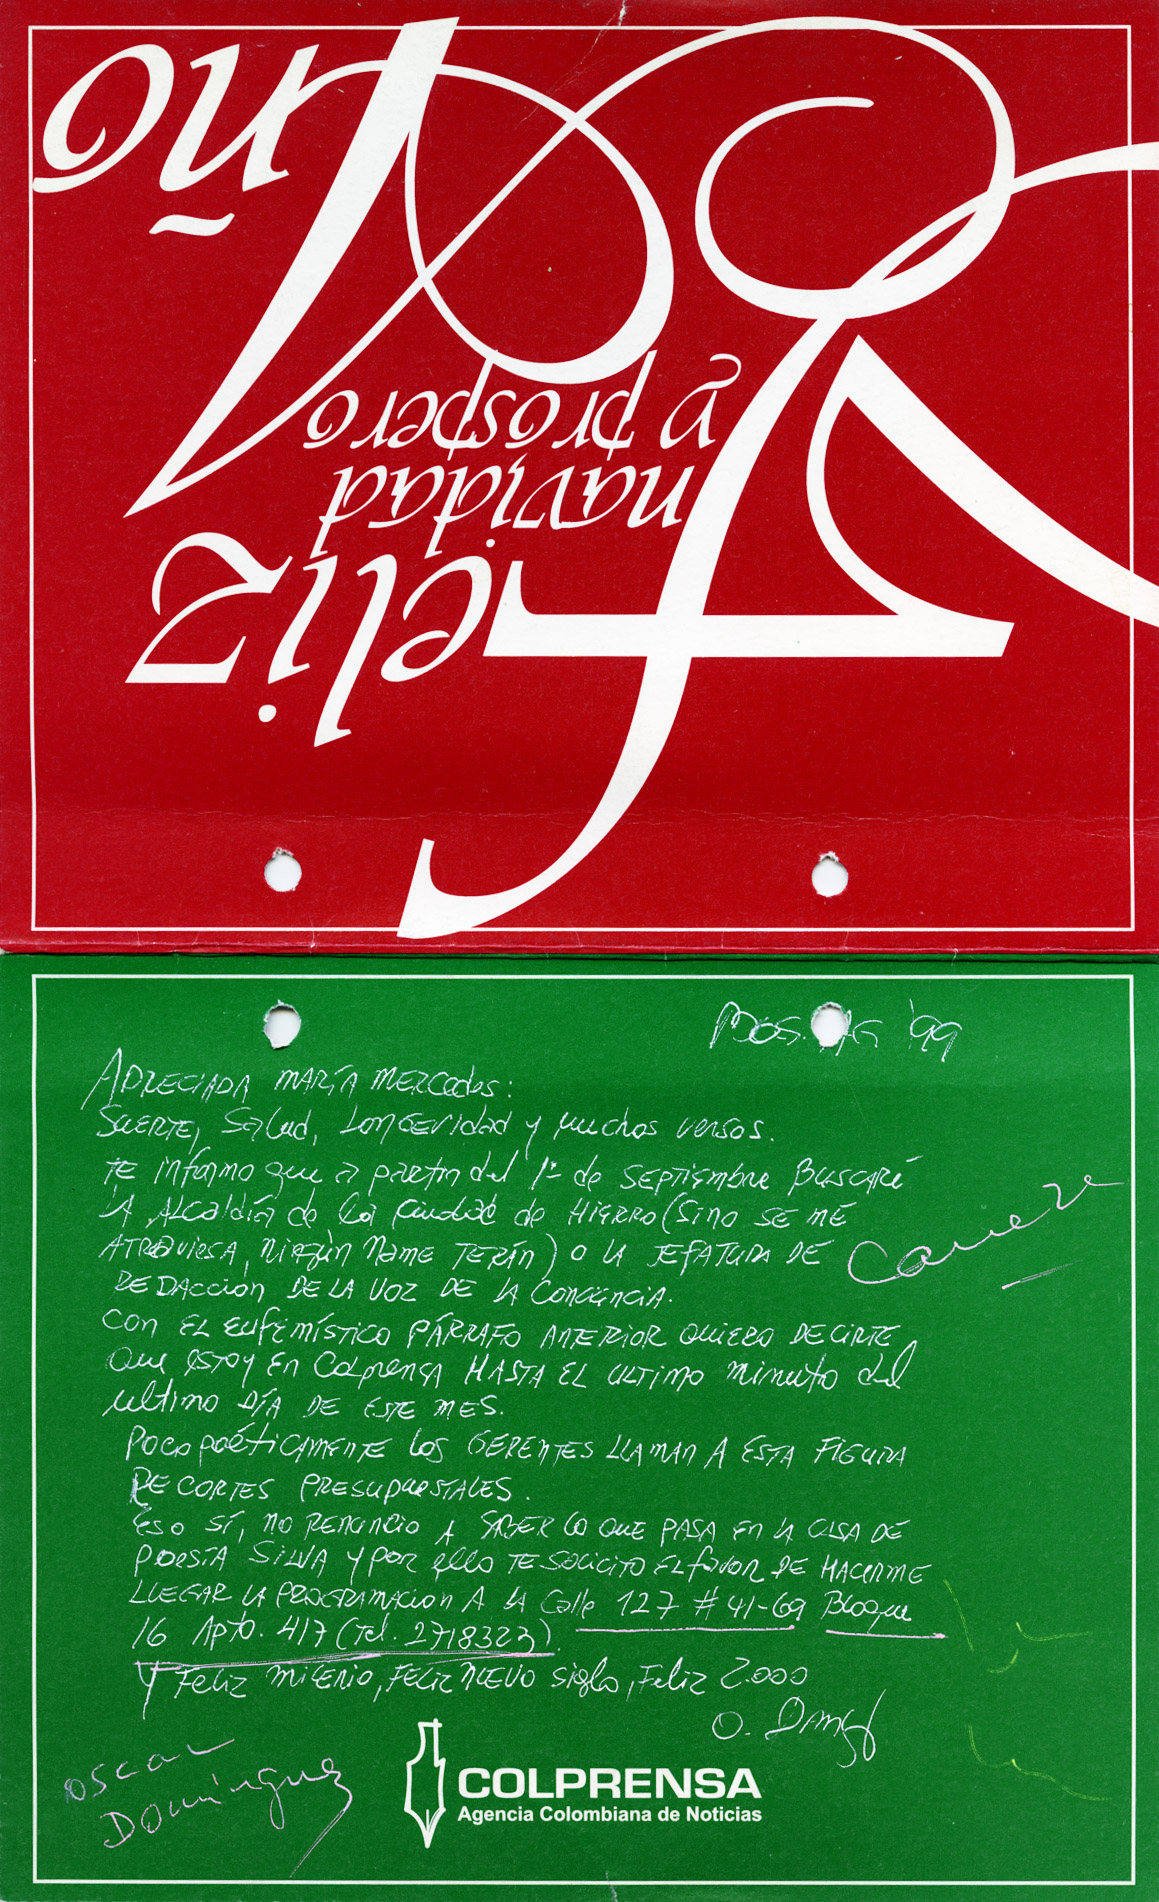 Feliz
navidad
y próspero
Año
Bog. AG '99
APRECIADA MARÍA MERCEDES:
SUERTE, Salud, Longevidad y muchos versos.
TE informo que a partir del 1º de SEPTIEMBRE BUSCARÉ
LA ALCALDÍA de la Ciudad de HIERRO (SINO SE ME
ATRAVIESA, Ningún Ñame TERÁN) O LA JEFATURA DE
REDACCIÓN DE LA VOZ DE LA CONCIENCIA.
CON EL EUFEMÍSTICO PÁRRAFO ANTERIOR QUIERO DECIRTE
QUE ESTOY EN COLPRENSA HASTA EL ULTIMO minuto del
ultimo DÍA DE ESTE MES.
POCO POÉTICAMENTE LOS GERENTES LLAMAN A ESTA FIGURA
RECORTES PRESUPUESTALES.
ESO SÍ, NO RENUNCIO A SABER LO QUE PASA EN LA CASA DE
POESÍA SILVA Y POR ello TE SOLICITO EL favor DE HACERME
LLEGAR LA PROGRAMACION A LA Calle 127 # 41-69 Bloque
16 Apto. 417 (Tel. 2718323).
Y FELIZ MILENIO, FELIZ NUEVO siglo, FELIZ 2.000
Oscar
Domínguez
COLPRENSA
Agencia Colombiana de Noticias